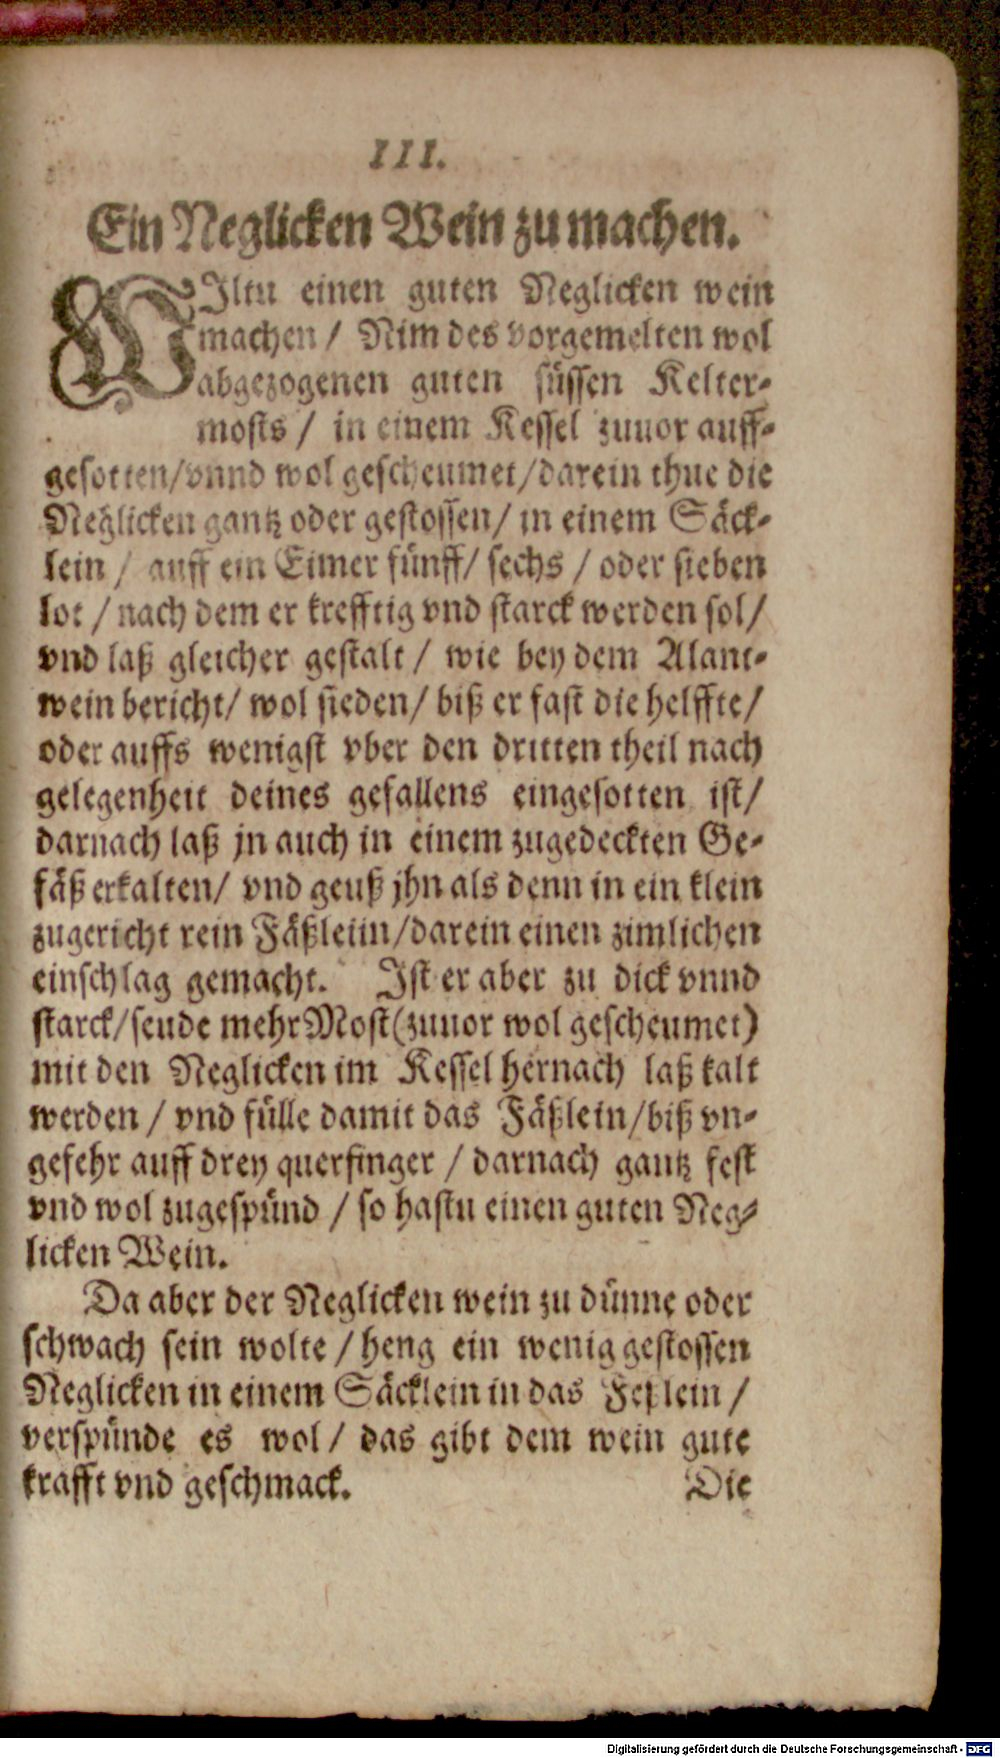 III.
Ein Neglicken Wein zu machen.
WIltu einen guten Neglicken wein
machen / Nim des vorgemelten wol
abgezogenen guten süssen Kelter-
mosts / in einem Kessel zuuor auff-
gesotten/vnnd wol gescheumet/darein thue die
Neglicken gantz oder gestossen/ in einem Säck-
lein / auff ein Eimer fünff/ sechs / oder sieben
lot / nach dem er krefftig vnd starck werden sol/
vnd laß gleicher gestalt / wie bey dem Alant-
wein bericht/ wol sieden/ biß er fast die helffte/
oder auffs wenigst vber den dritten theil nach
gelegenheit deines gefallens eingesotten ist/
darnach laß jn auch in einem zugedeckten Ge-
fäß erkalten/ vnd geuß jhn als denn in ein klein
zugericht rein Fäßleiin/darein einen zimlichen
einschlag gemacht. Ist er aber zu dick vnnd
starck/seude mehr Most(zuuor wol gescheumet)
mit den Neglicken im Kessel hernach laß kalt
werden / vnd fülle damit das Fäßlein/biß vn-
gefehr auff drey querfinger / darnach gantz fest
vnd wol zugespünd / so hastu einen guten Neg-
licken Wein.
Da aber der Neglicken wein zu dünne oder
schwach sein wolte / heng ein wenig gestossen
Neglicken in einem Säcklein in das Feßlein /
verspünde es wol / das gibt dem wein gute
krafft vnd geschmack. Die
Digitalisierung gefördert durch die Deutsche Forschungsgemeinschaft - DFG